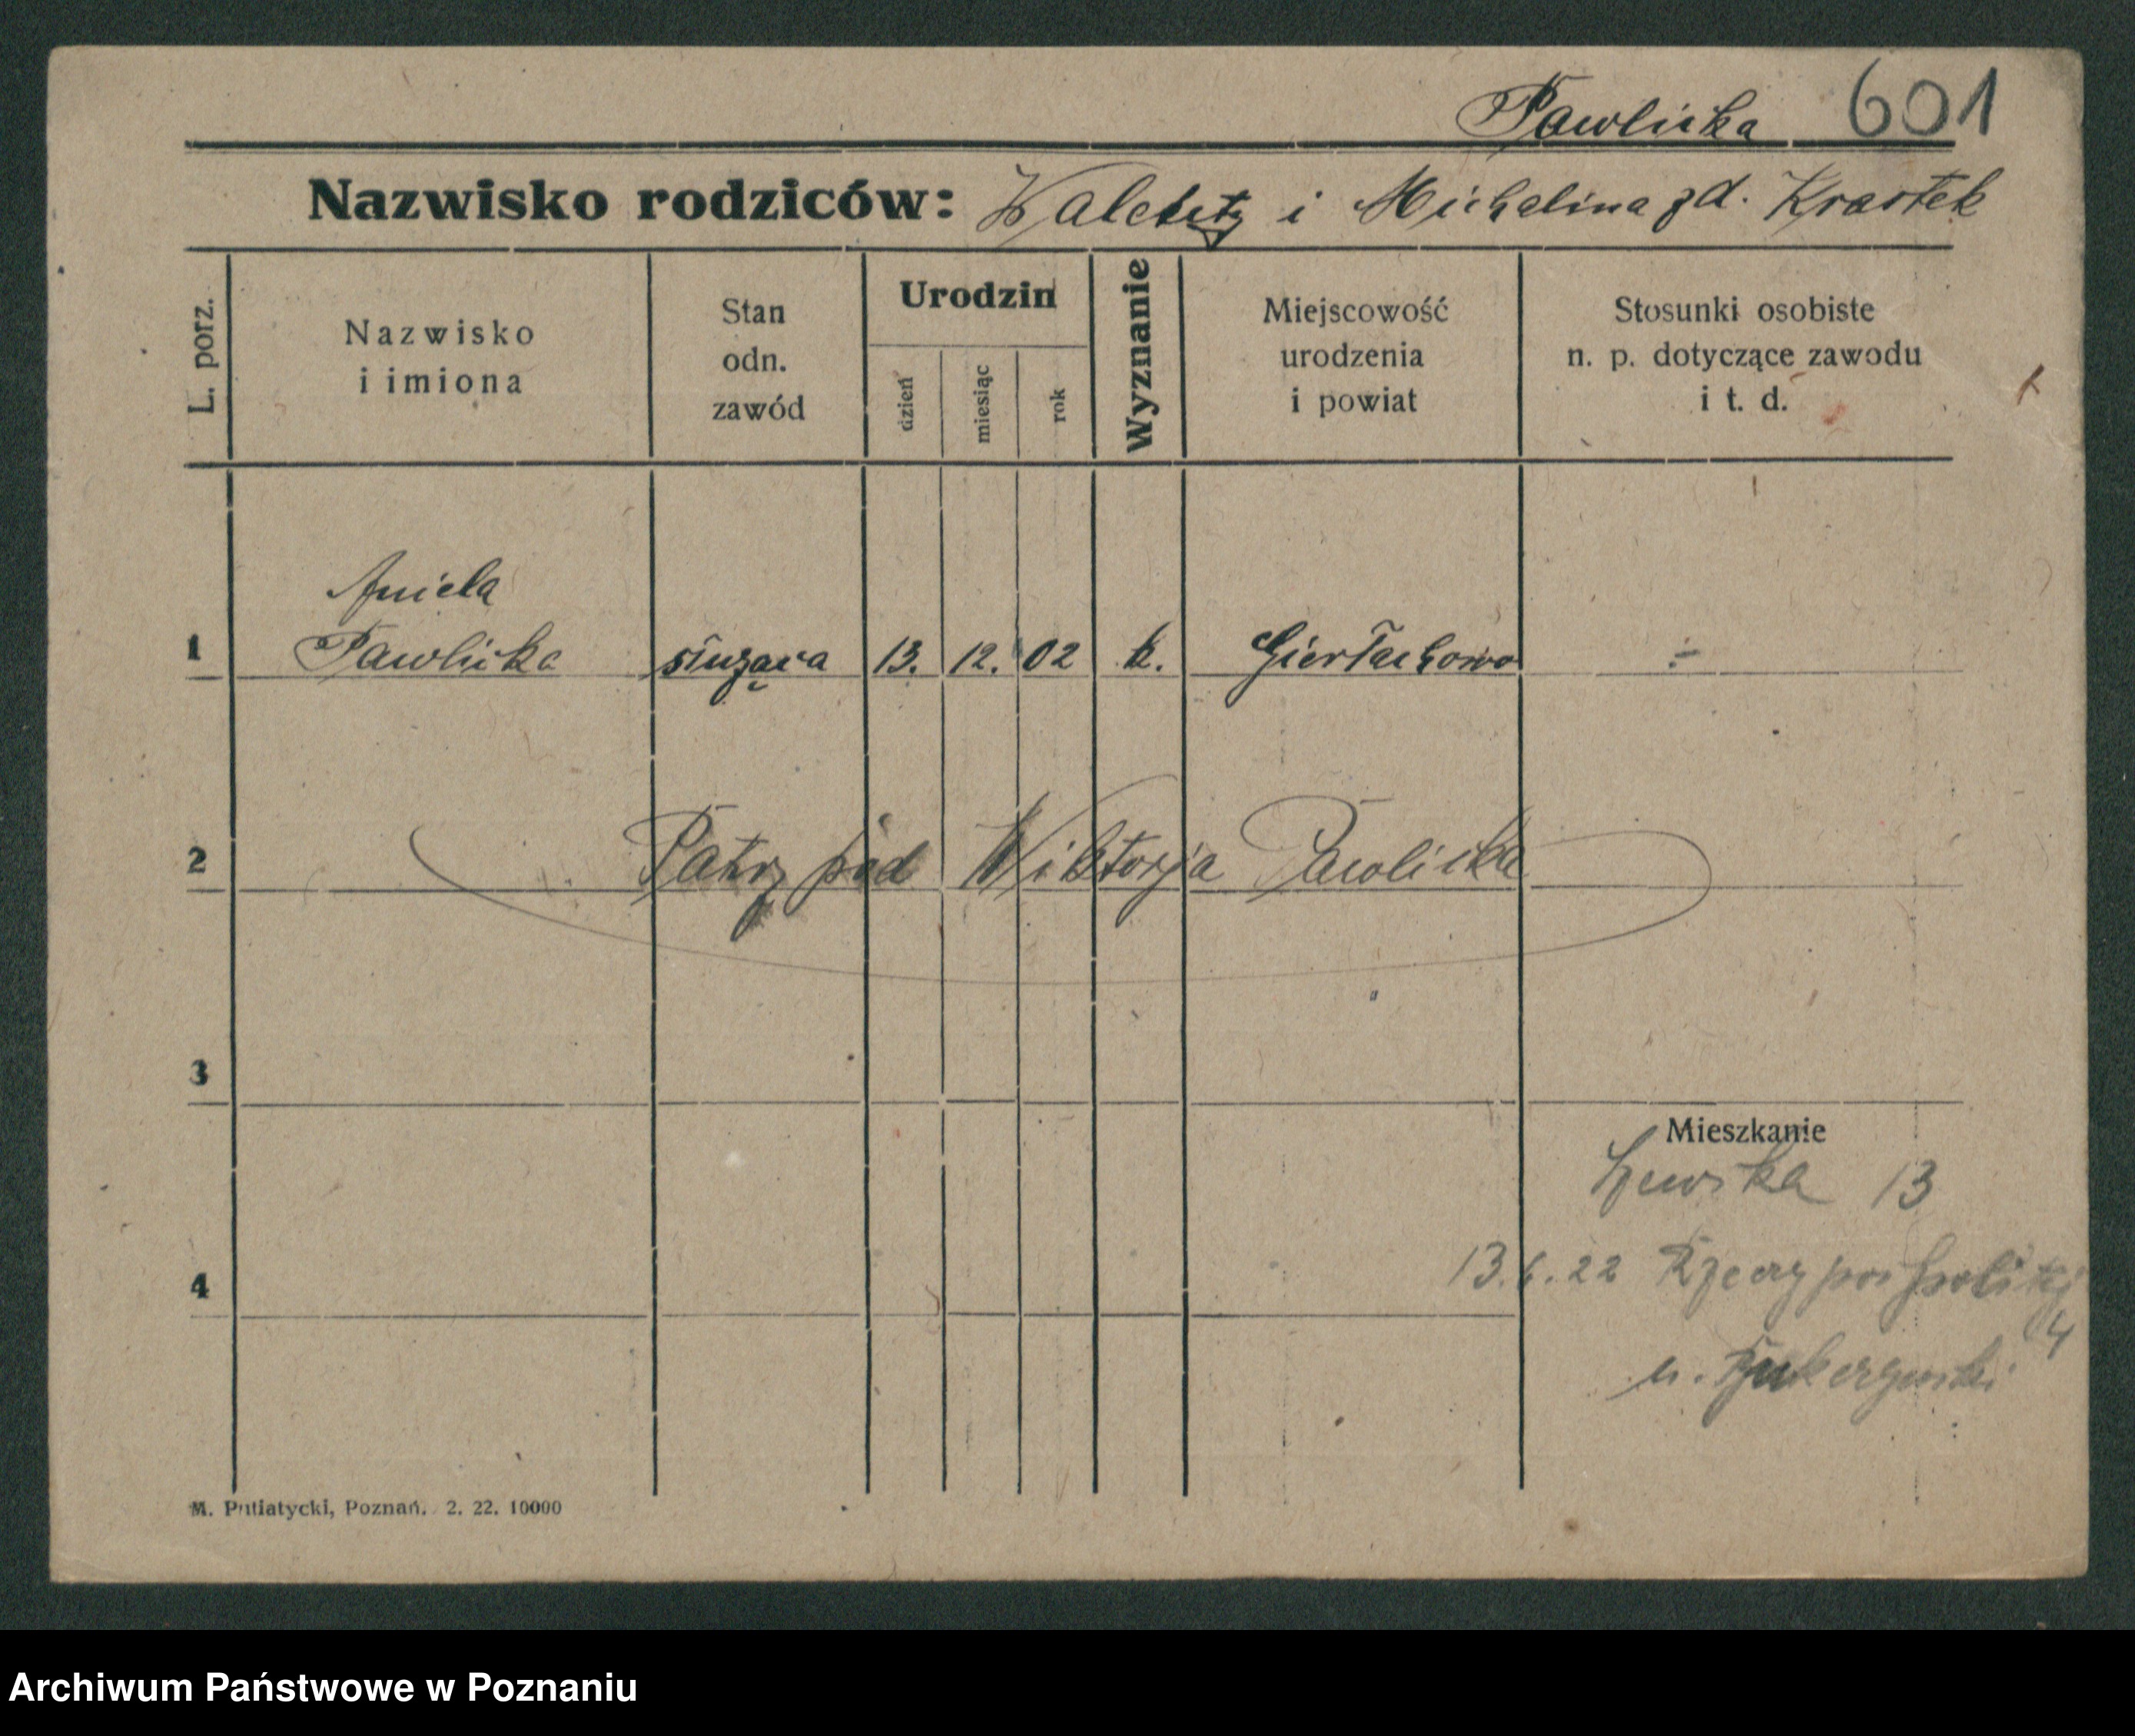 Pawlicka 601
Nazwisko rodziców: Walenty i Michalina zd. Krastek
L. porz.
Nazwisko
i imiona
Stan
odn.
zawód
Urodzin
dzień
miesiąc
rok
Wyznanie
Miejscowość
urodzenia
i powiat
Stosunki osobiste
n. p. dotyczące zawodu
i t. d.
Aniela
1 Pawlicka służąca 13. 12. 02 k. Gierłachowo ÷
2 Patrz pod Wiktorja Pawlicka
3
Mieszkanie
13
4 13.6.22 Rzeczypospolitej
4
u.
M. Putiatycki, Poznań. 2. 22. 10000
Archiwum Państwowe w Poznaniu